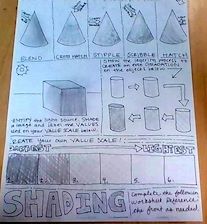 BLEND CROSS HATCH STIPPLE SCRIBBLE HATCH
SHOW the layering process to
CREATE an even GRADATION
on the objects below
IDENTIFY the light source. Shade
image and label the VALUES
used on your VALUE SCALE below.
CREATE your own VALUE SCALE!
DARKEST LIGHTEST
2. 3. 4. 5. 6.
SHADING
Complete the following
worksheet. Reference
the front as needed.